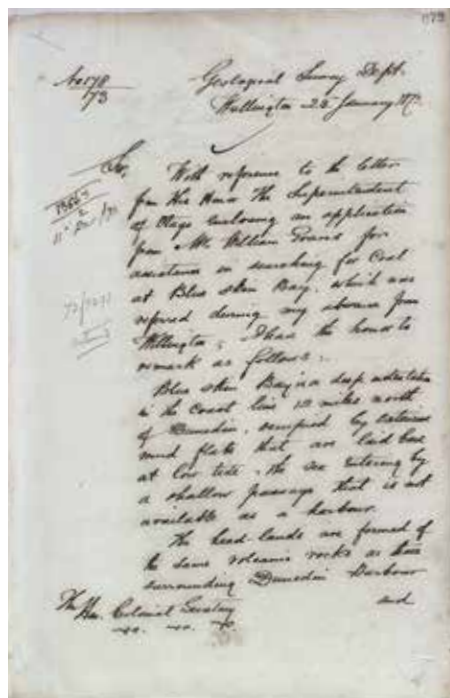 No 178
73
Geological Survey Dept.
Wellington 22 January 1873
Sir,
With reference to the letter
from His Honor The Superintendent
of Otago enclosing an application
from Mr William Evans for
assistance in searching for Coal
at Blue Skin Bay, which was
referred during my absence from
Wellington, I have the honor to
remark as follows:
Blue Skin Bay is a deep indentation
in the Coast line 12 miles north
of Dunedin, occupied by extensive
mud flats that are laid bare
at low tide, the sea entering by
a shallow passage that is not
available as a harbour.
The head lands are formed of
the same volcanic rocks as those
surrounding Dunedin Harbour
and
The Hon. Colonial Secretary